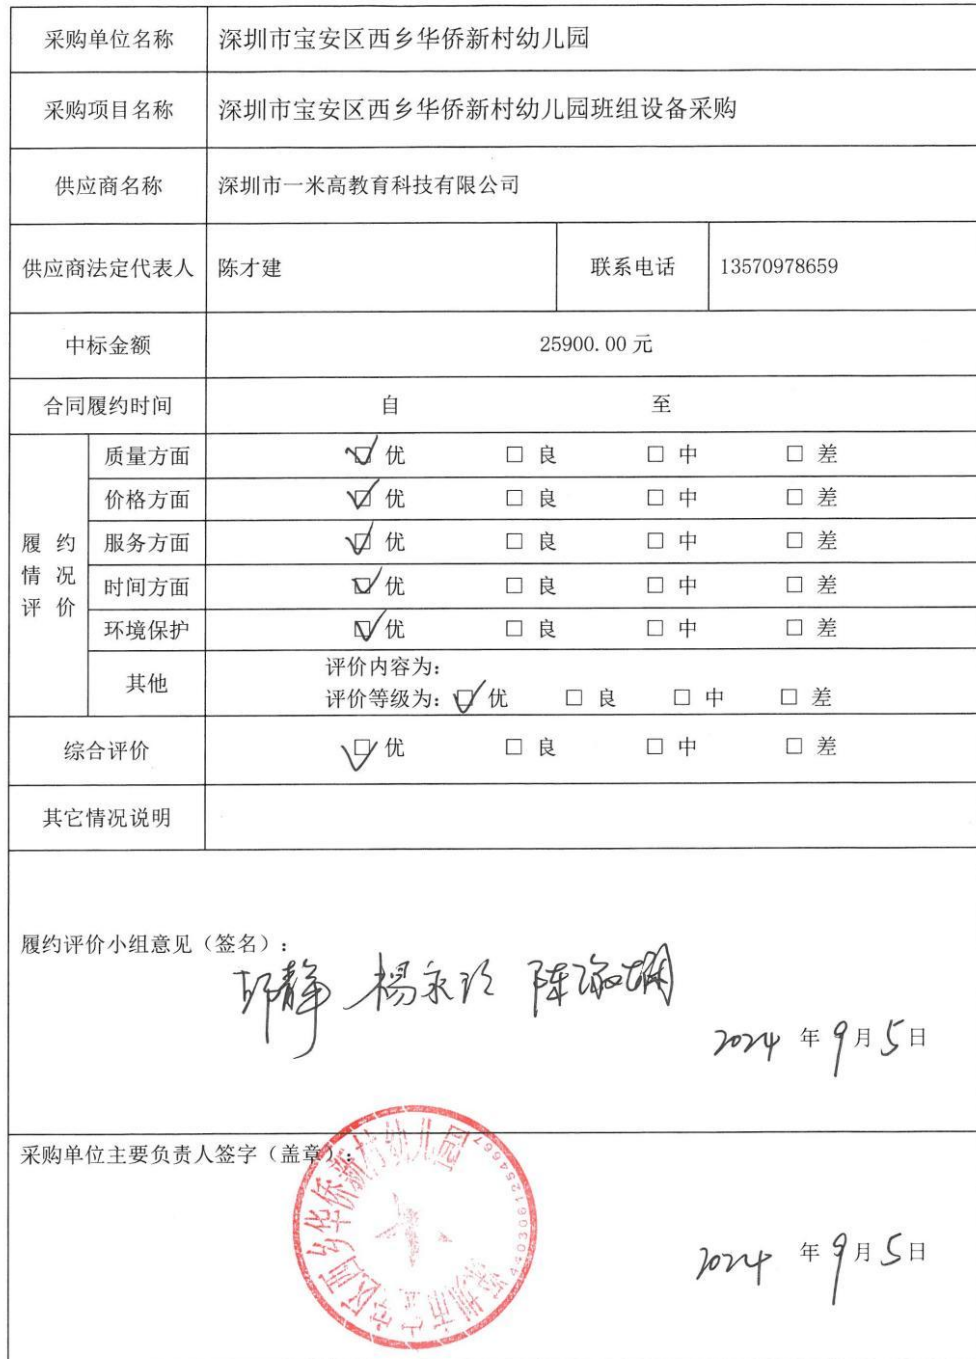 采购单位名称 深圳市宝安区西乡华侨新村幼儿园
采购项目名称 深圳市宝安区西乡华侨新村幼儿园班组设备采购
供应商名称 深圳市一米高教育科技有限公司
供应商法定代表人 陈才建 联系电话 13570978659
中标金额 25900.00 元
合同履约时间 自 至
履约情况评价
质量方面 ☑ 优 □ 良 □ 中 □ 差
价格方面 ☑ 优 □ 良 □ 中 □ 差
服务方面 ☑ 优 □ 良 □ 中 □ 差
时间方面 ☑ 优 □ 良 □ 中 □ 差
环境保护 ☑ 优 □ 良 □ 中 □ 差
其他 评价内容为:
评价等级为: ☑ 优 □ 良 □ 中 □ 差
综合评价 ☑ 优 □ 良 □ 中 □ 差
其它情况说明
履约评价小组意见（签名）:
静 杨永玲 陈
2024 年 9 月 5 日
采购单位主要负责人签字（盖章）:
深圳市宝安区西乡华侨新村幼儿园
4403061254667
2024 年 9 月 5 日